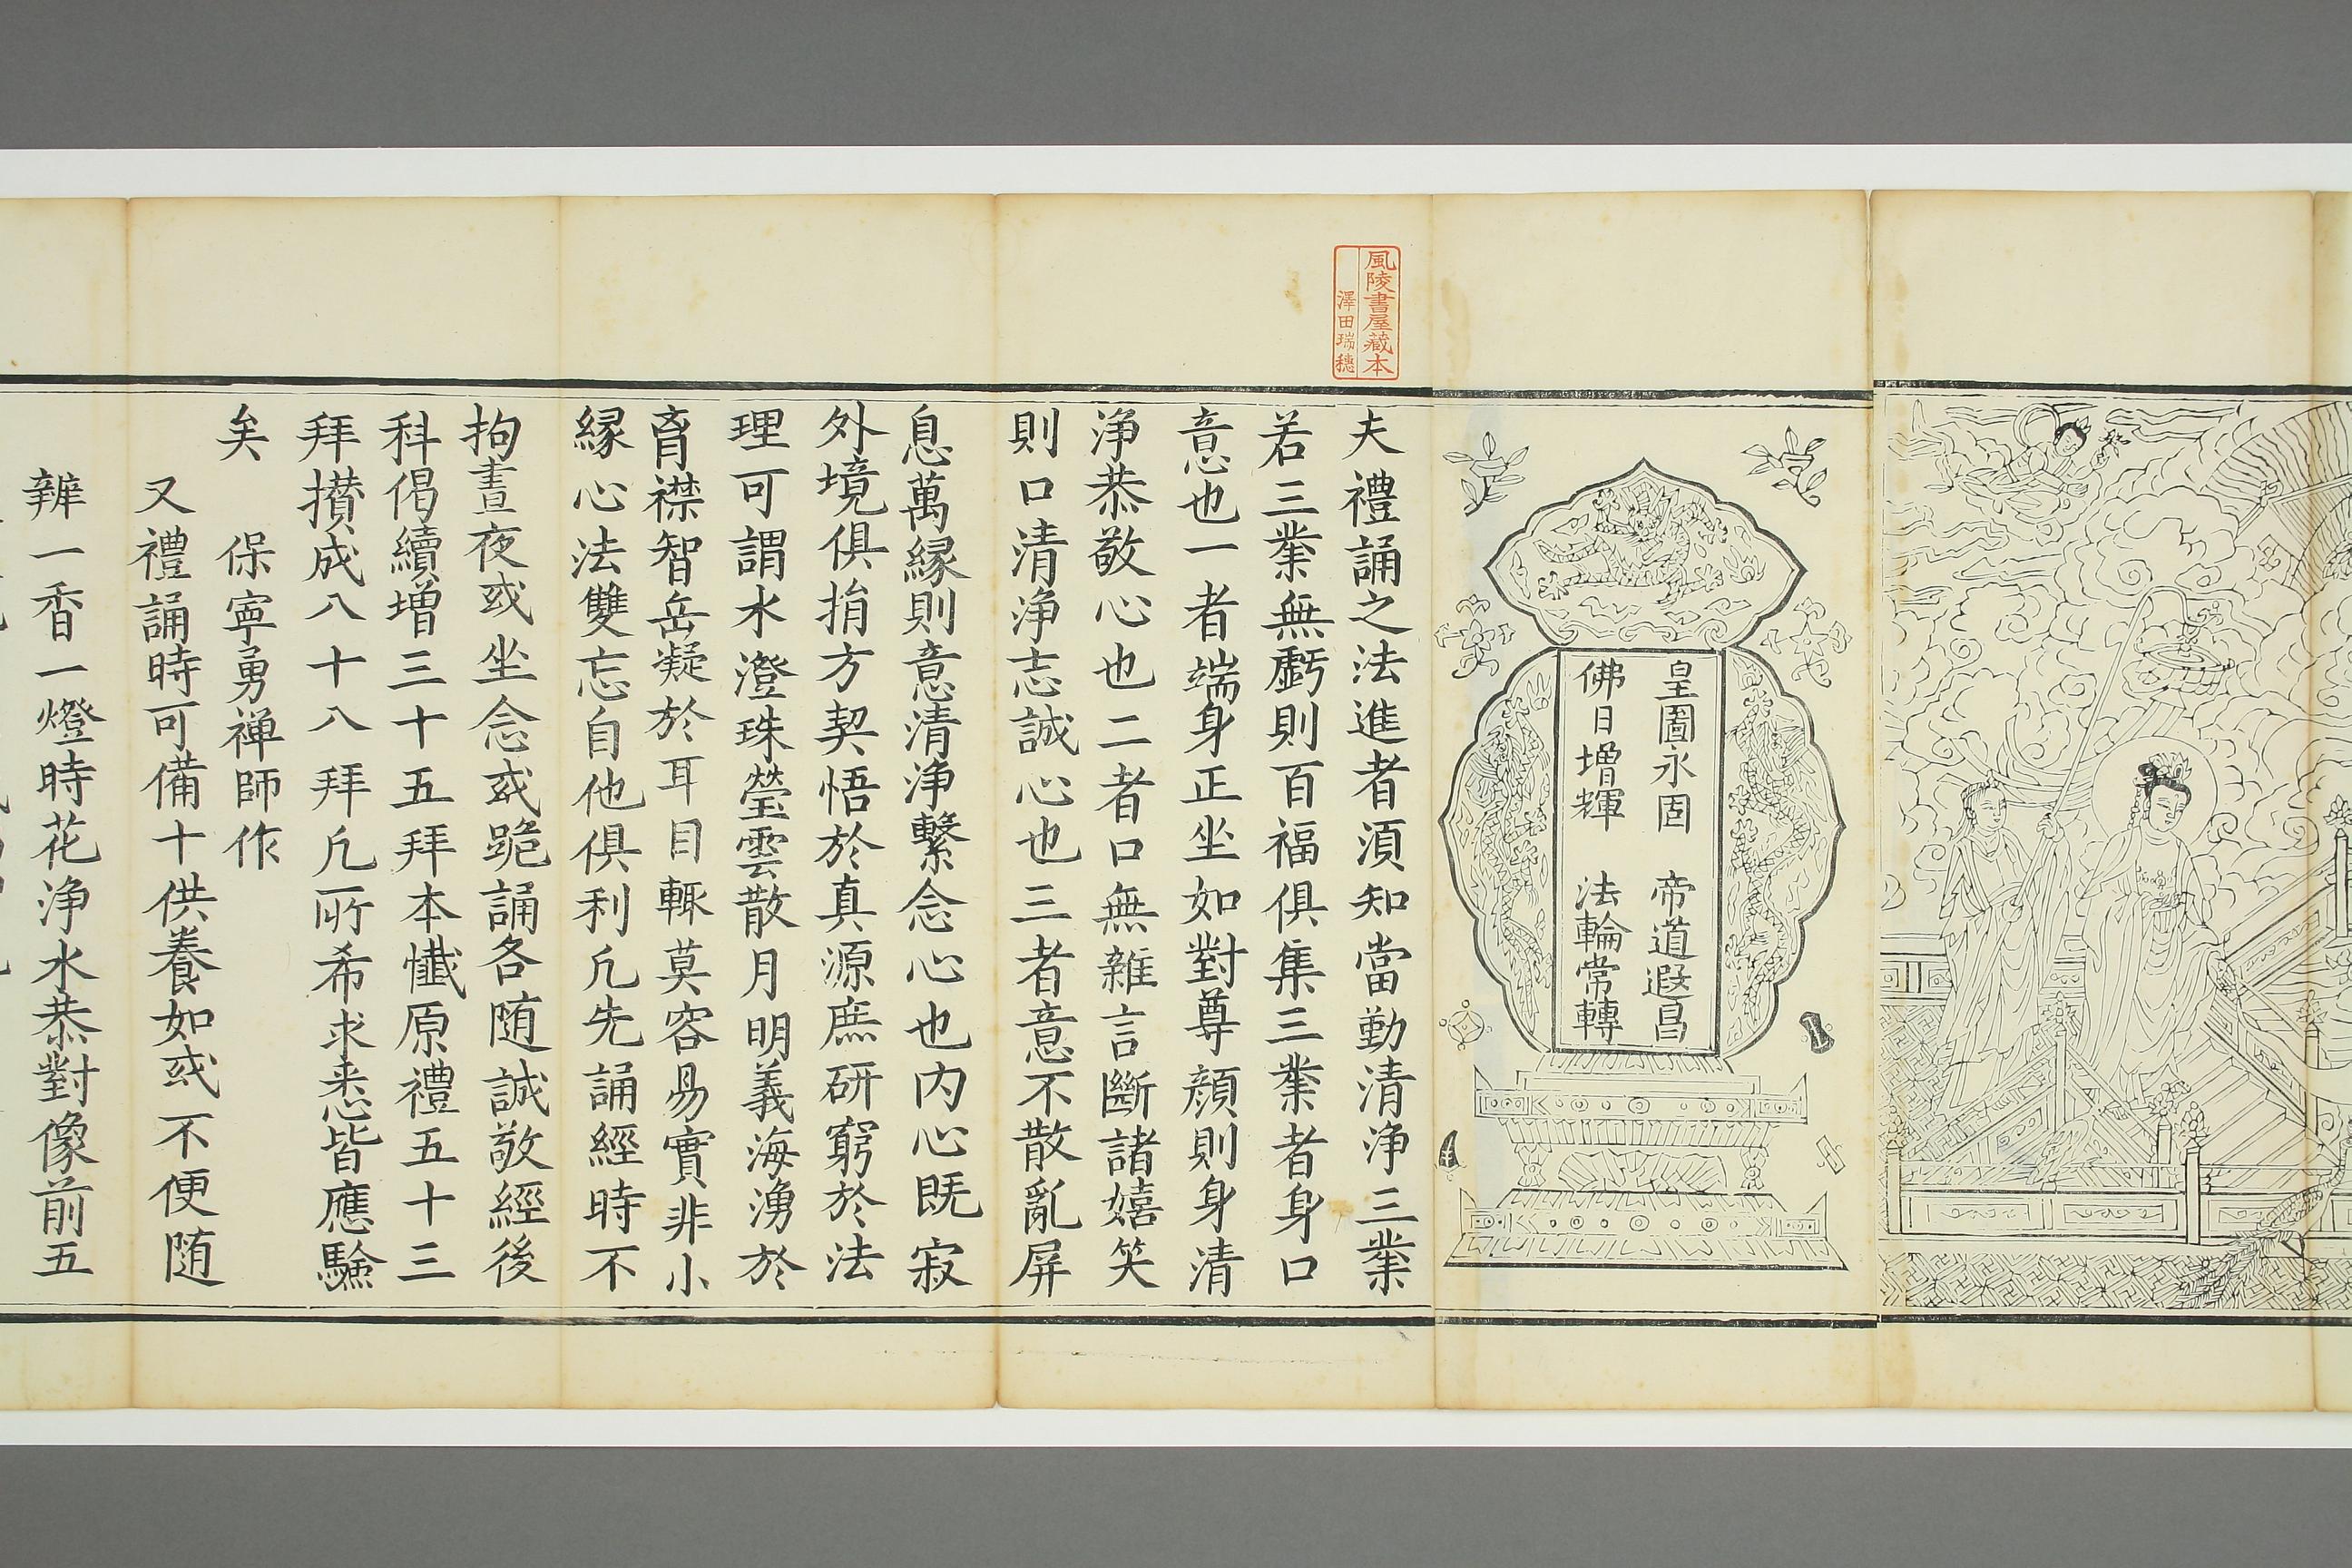 皇圖永固　帝道遐昌
佛日增輝　法輪常轉
風陵書屋藏本
澤田瑞穗
夫禮誦之法進者湏知當勤清淨三業
若三業無虧則百福俱集三業者身口
意也一者端身正坐如對尊顏則身清
淨恭敬心也二者口無雜言斷諸嬉笑
則口清淨志誠心也三者意不散亂屏
息萬緣則意清淨繫念心也内心既寂
外境俱捐方契悟於真源庶研窮於法
理可謂水澄珠瑩雲散月明義海湧於
育襟智岳凝於耳目輙莫容昜實非小
緣心法雙忘自他俱利凢先誦經時不
拘晝夜或坐念或跪誦各随誠敬經後
科偈續增三十五拜本懺原禮五十三
拜攅成八十八拜凢所希求悉皆應驗
矣　保寧勇禅師作
又禮誦時可備十供養如或不便随
辦一香一燈時花淨水恭對像前五